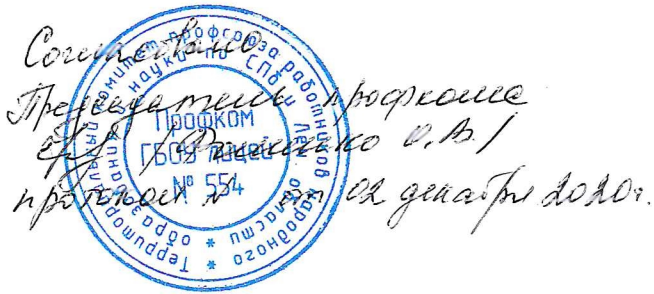 Согласовано
Председатель профкома
/ О.В./
протокол № от 02 декабря 2020г.
Территориальный комитет профсоюза работников народного образования и науки по СПб и Лен области
Профком
ГБОУ лицей
№ 554